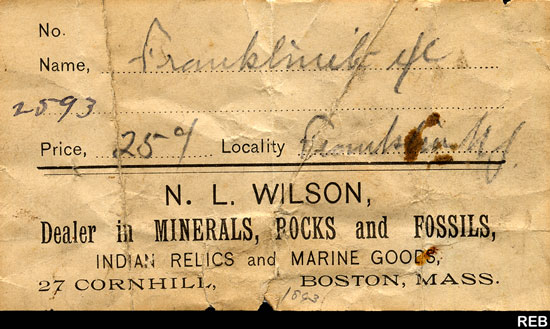 No.
Name, Franklinite
2593
Price, 25 Locality Franklin N.J.
N. L. WILSON,
Dealer in MINERALS, ROCKS and FOSSILS,
INDIAN RELICS and MARINE GOODS,
27 CORNHILL, BOSTON, MASS.
REB